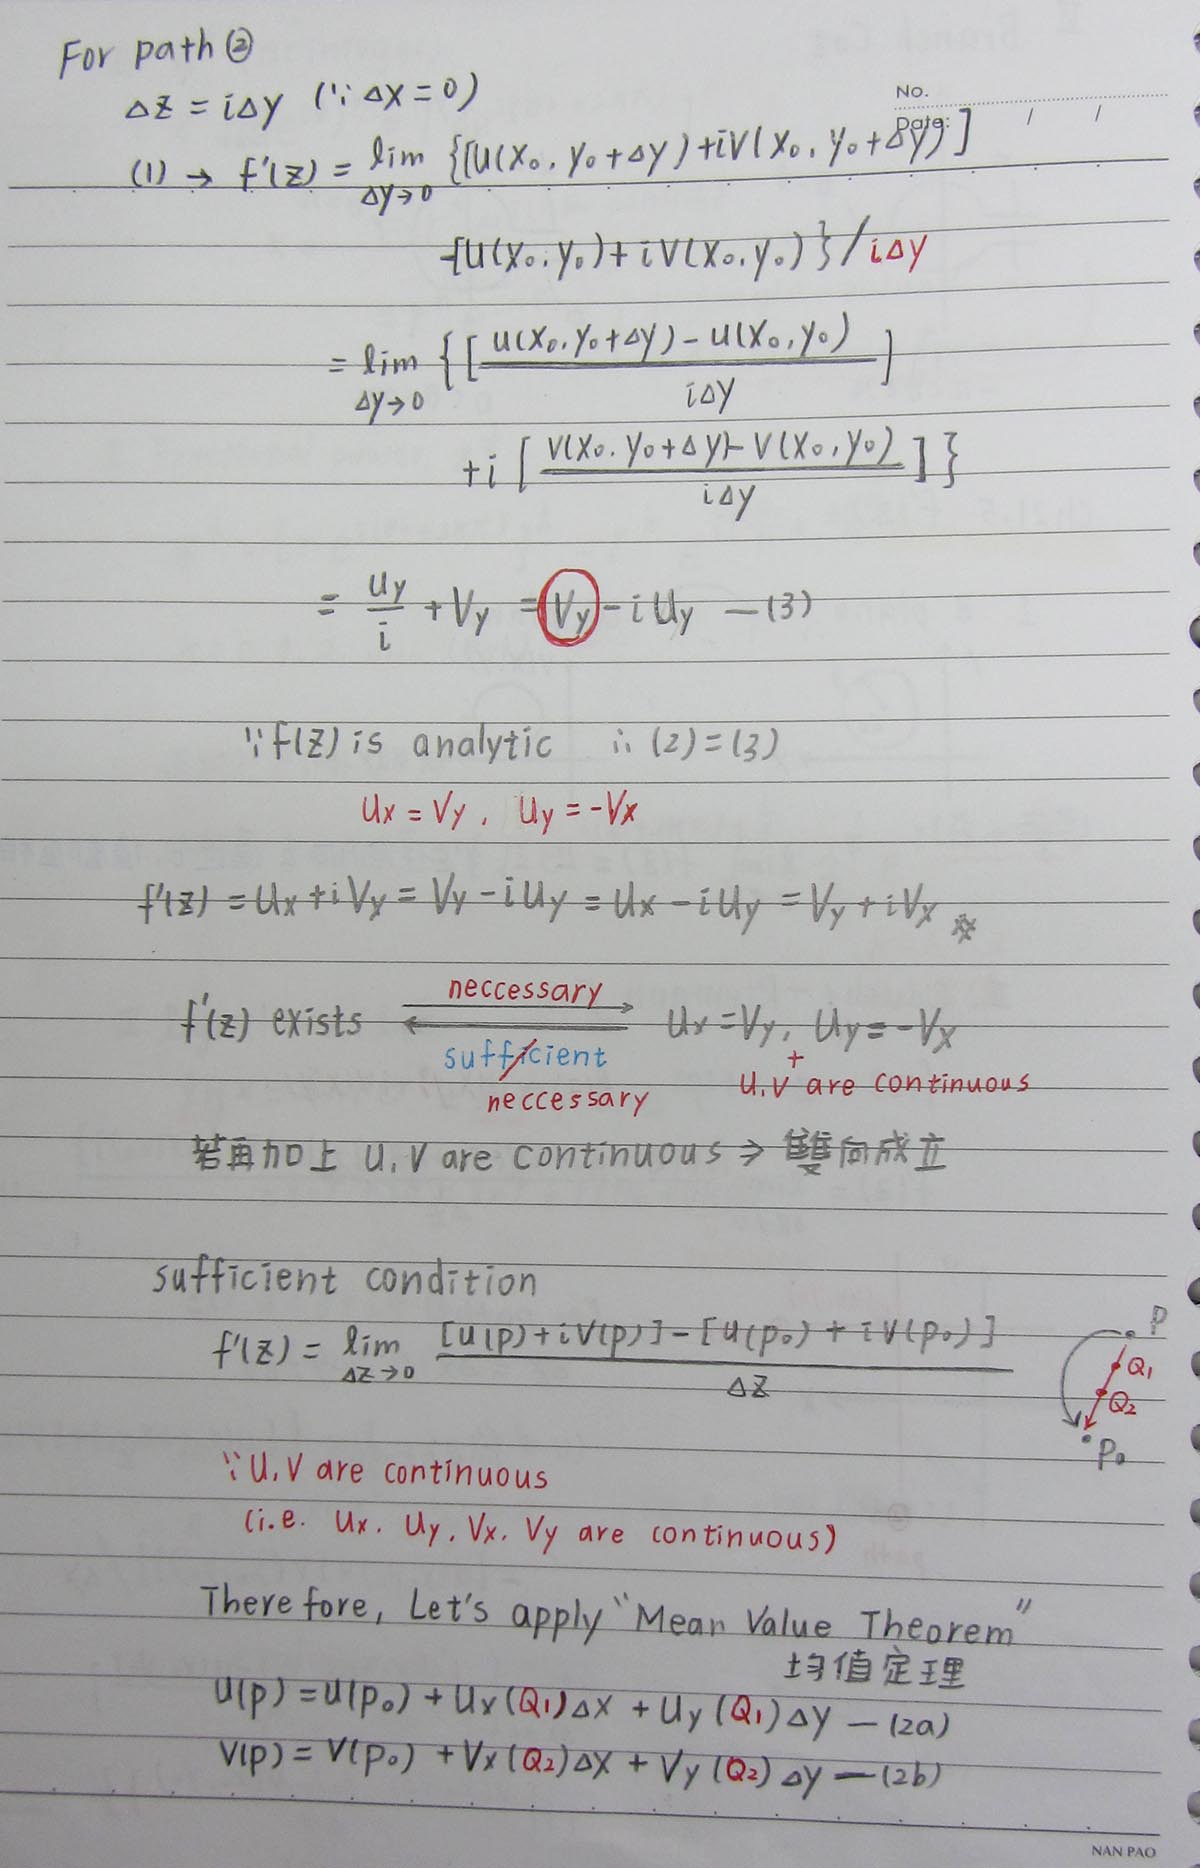 For path ②
Δz = iΔy (∵ Δx = 0)
No.
Date: / /
(1) → f'(z) = lim Δy→0 {[u(x₀, y₀+Δy) + iv(x₀, y₀+Δy)]
-[u(x₀, y₀) + iv(x₀, y₀)} / iΔy
= lim Δy→0 {[ u(x₀, y₀+Δy) - u(x₀, y₀) / iΔy ]
+ i [ v(x₀, y₀+Δy) - v(x₀, y₀) / iΔy ] }
= uy / i + Vy = Vy - i uy — (3)
∵ f(z) is analytic ∴ (2) = (3)
ux = Vy, uy = -Vx
f'(z) = ux + iVx = Vy - iuy = ux - iuy = Vy + iVx ※
neccessary
f'(z) exists ux = Vy, uy = -Vx
sufficient +
neccessary u,v are continuous
若再加上 u, v are continuous ⇒ 雙向成立
sufficient condition
f'(z) = lim Δz→0 [u(p) + iv(p)] - [u(p₀) + iv(p₀)] / Δz
P
Q₁
Q₂
P₀
∵ u, v are continuous
(i.e. ux, uy, vx, vy are continuous)
Therefore, Let's apply "Mean Value Theorem"
均值定理
u(p) = u(p₀) + ux(Q₁)Δx + uy(Q₁)Δy — (2a)
v(p) = v(p₀) + vx(Q₂)Δx + vy(Q₂)Δy — (2b)
NAN PAO